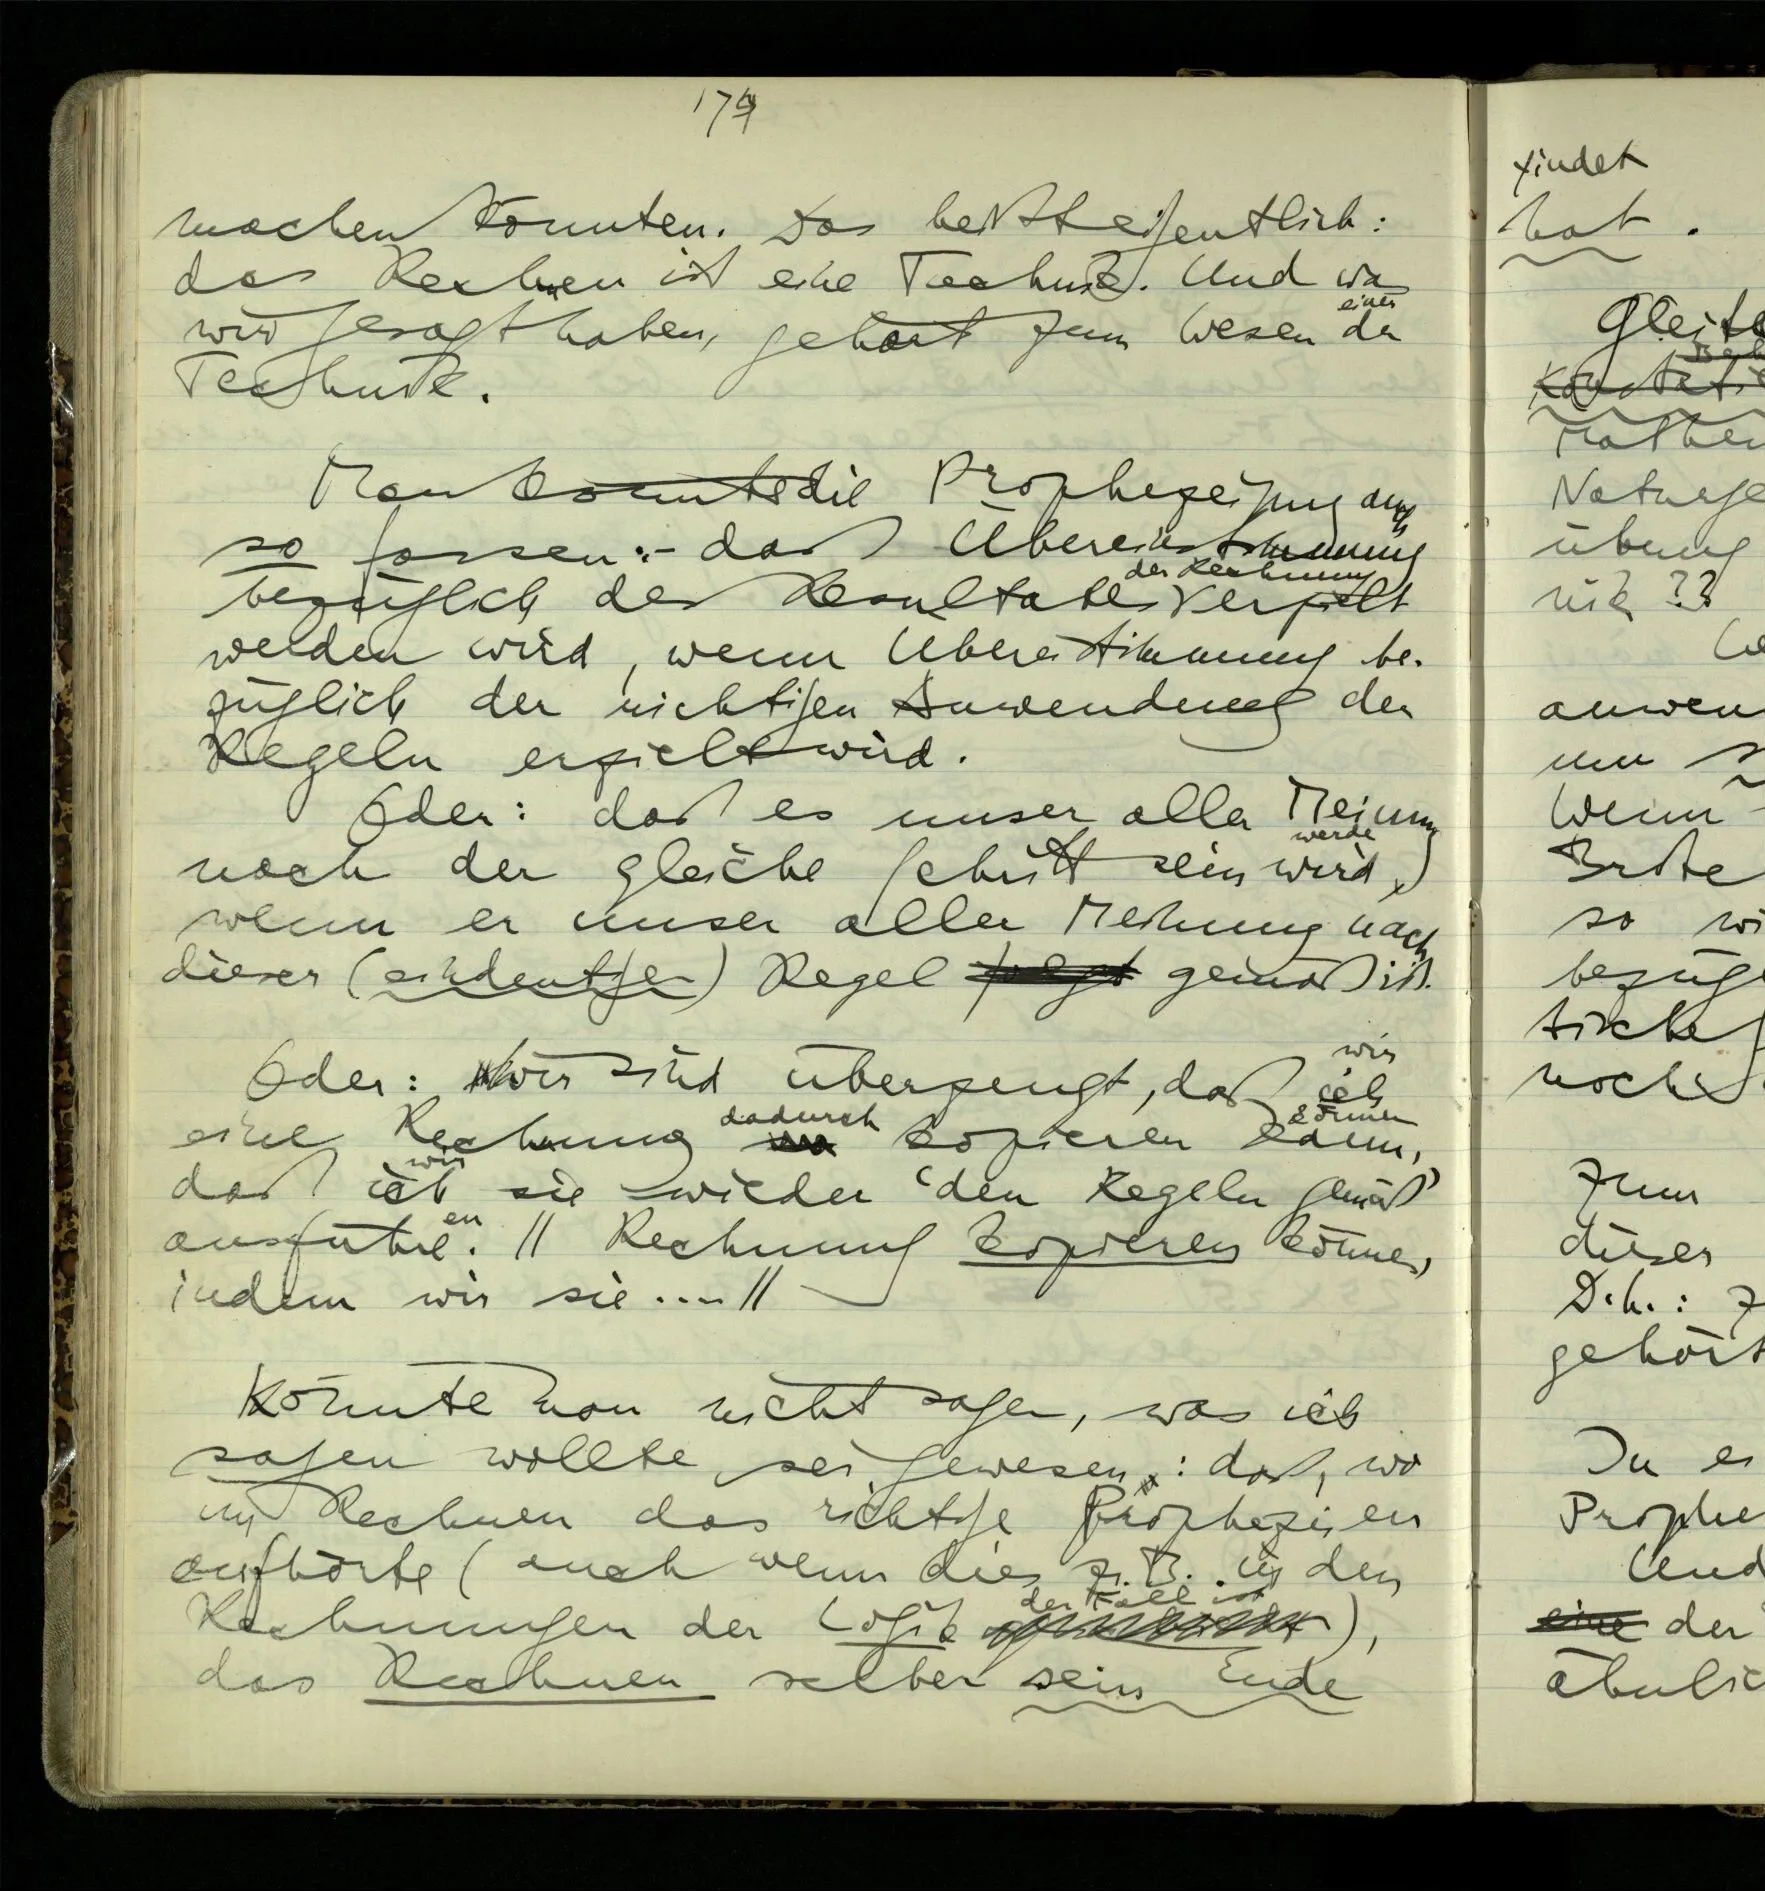 174
machen könnten. Das heißt eigentlich:
das Rechnen ist eine Technik. Und was
einer
wir gesagt haben, gehört zum Wesen der
Technik.
Man könnte die Prophezeiung auch
so fassen: – daß Übereinstimmung
der Rechnung
bezüglich des Resultates erzielt
werden wird, wenn Übereistimmung be-
züglich der richtigen Anwendung der
Regeln erzielt wird.
Oder: daß es unser aller Meinung
werde
nach der gleiche Schritt sein wird,
wenn er unser aller Meinung nach
dieser (eindeutigen) Regel folgt gemäß ist.
wir
Oder: Wir sind überzeugt, daß ich
dadurch können
eine Rechnung kopieren kann,
wir
daß ich sie wieder ‘den Regeln gemäß’
en
ausführe. // Rechnung kopieren können,
indem wir sie .... //
Könnte man nicht sagen, was ich
sagen wollte, sei gewesen: daß, wo
im Rechnen das richtige Prophezeien
aufhörte (auch wenn dies z.B. in den
der Fall ist
Rechnungen der Logik ),
das Rechnen selber sein Ende
findet
hat.
Gleite
Mathem
Naturge
übung
nik ??
anwen
um
Wenn
Brote
so wi
bezügl
tische
noch
Zum
dieser
D.h.: z
gehört
In ei
Prophe
Und
eine der
ähnlic